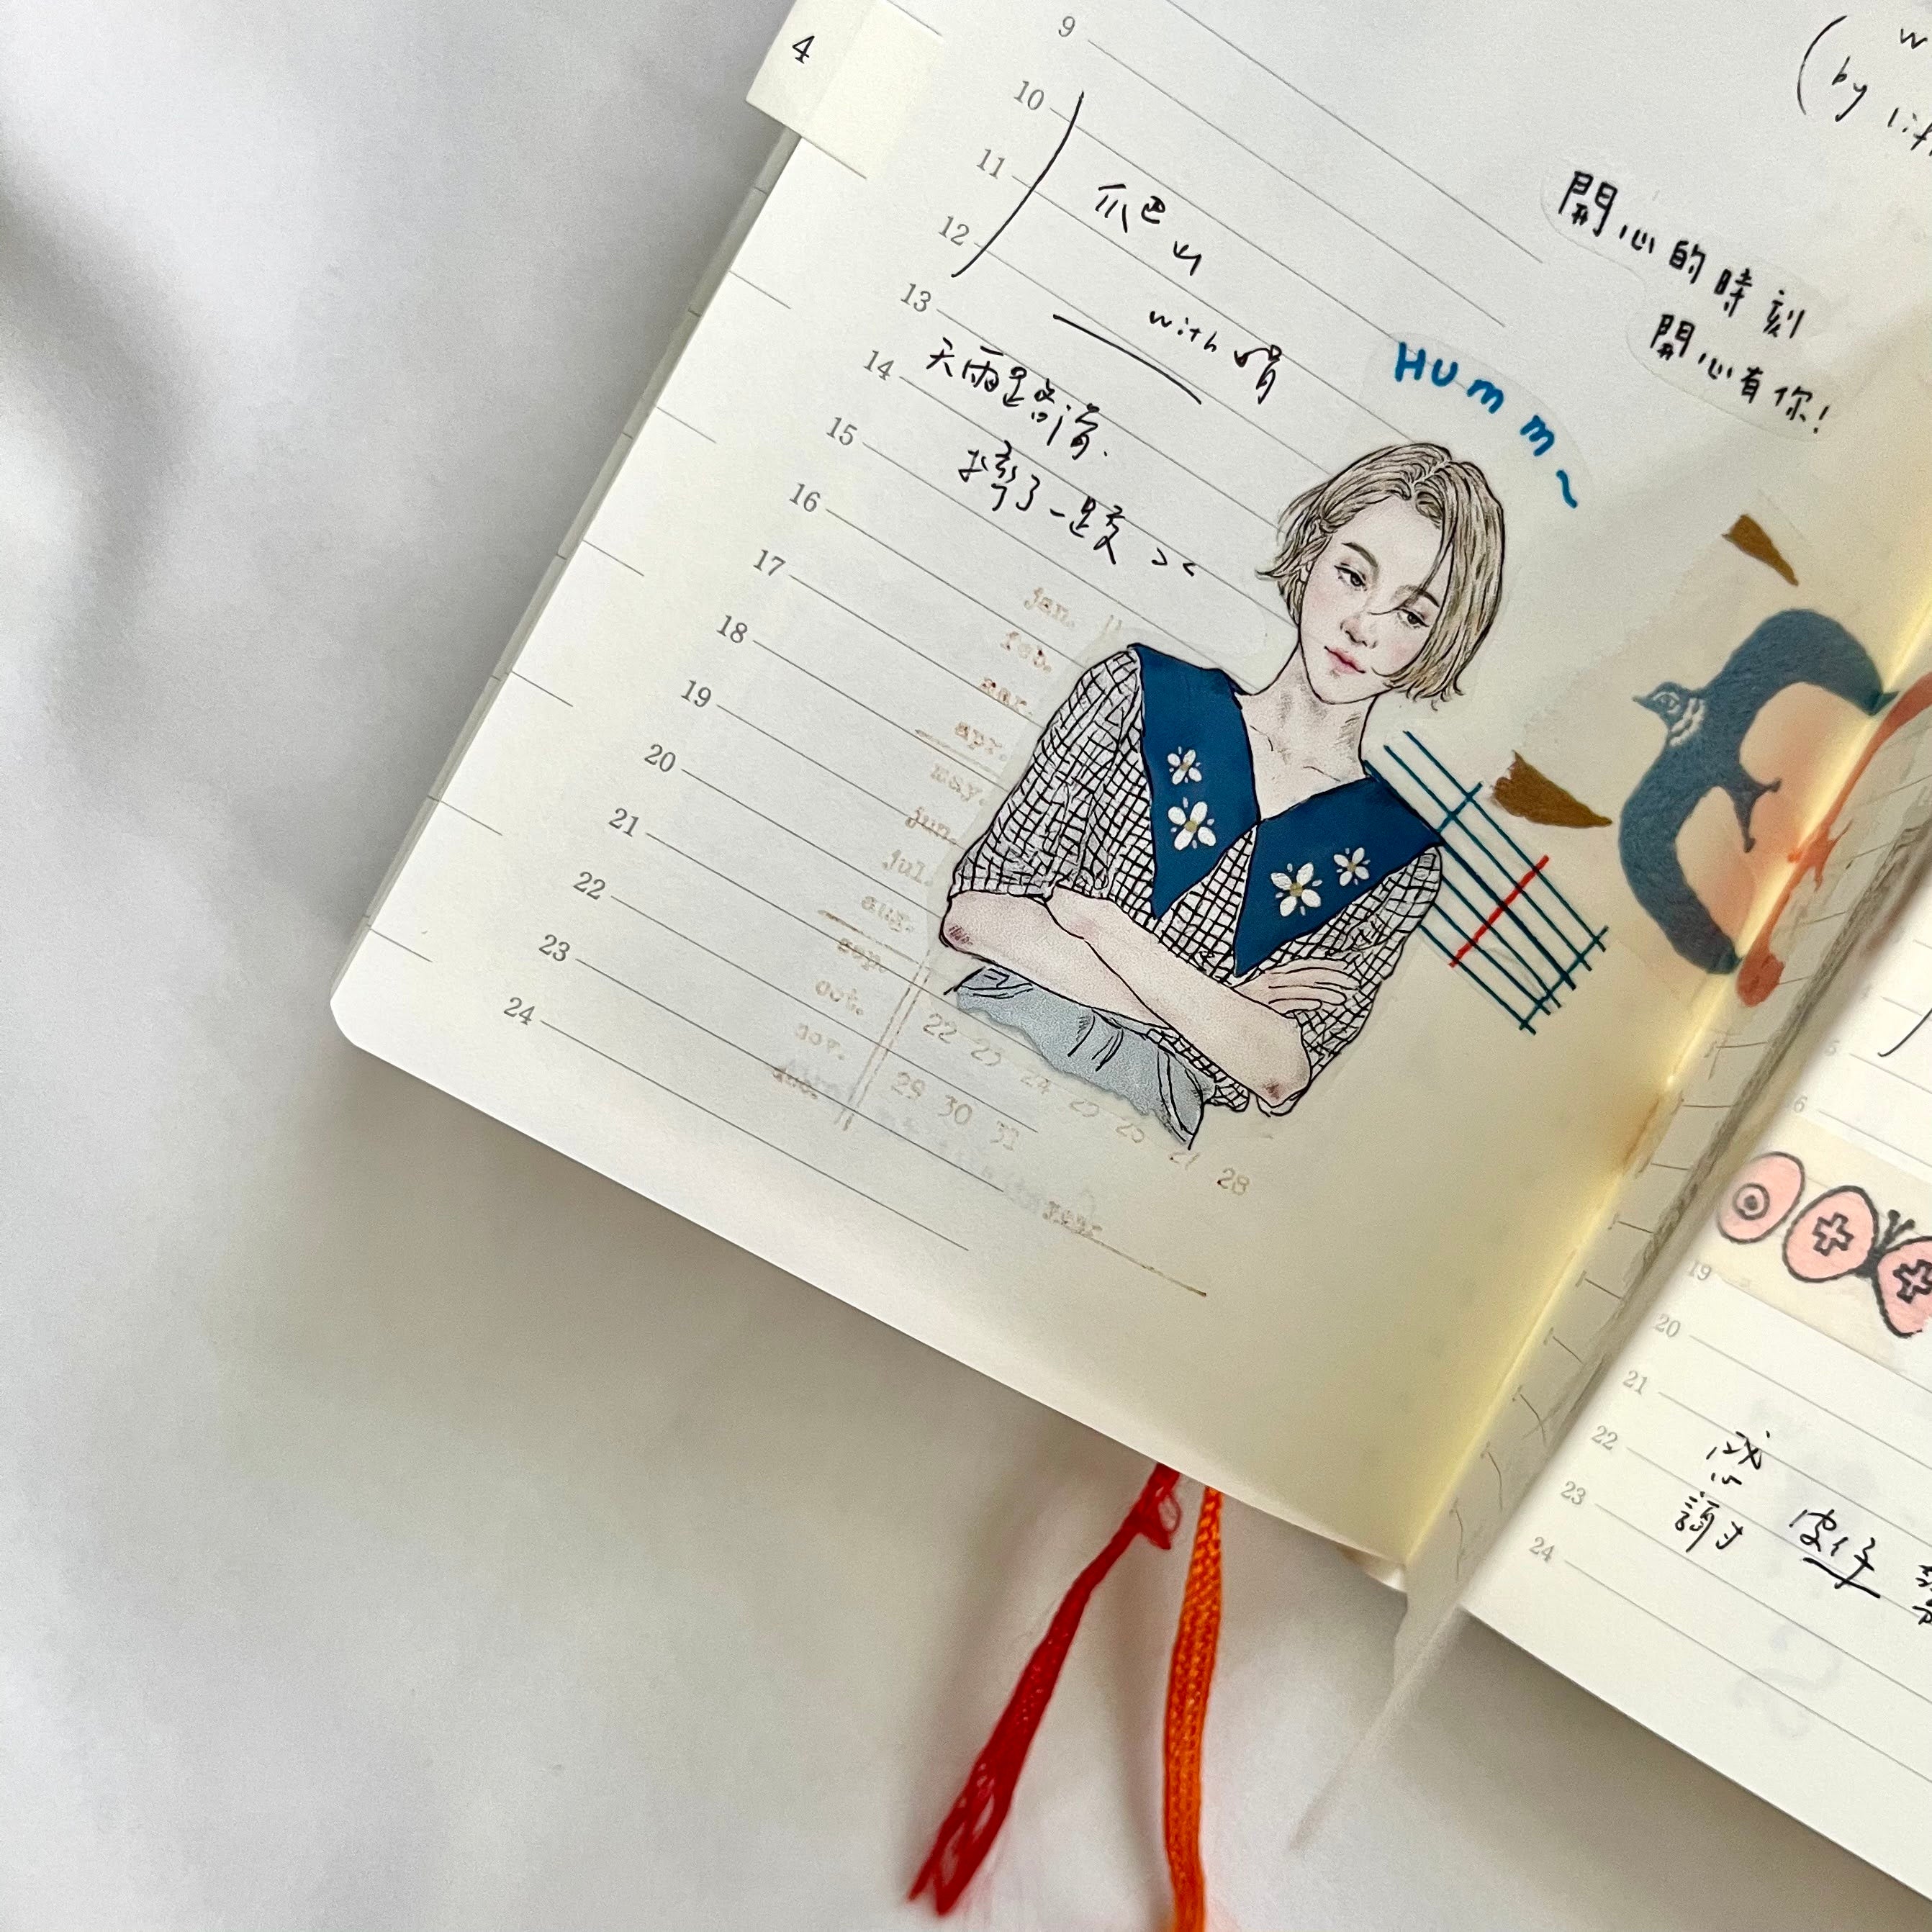 4
9
10
11
12
13
14
15
16
17
18
19
20
21
22
23
24
爬山
with 娟
天雨路滑.
摔了一跤 ><
(
by
開心的時刻
開心有你!
Humm~
jan.
feb.
mar.
apr.
may.
jun.
jul.
aug.
sep.
oct.
nov.
22 23 24 25 26 27 28
29 30 31
19
20
21
22
23
24
感謝 皮仔